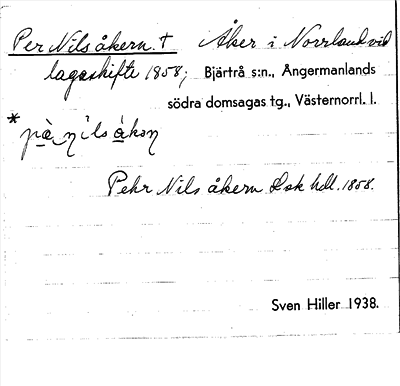 Per Nils åkern. † Åker i Norrland vid
lagaskifte 1858; Bjärtrå s:n., Ångermanlands
södra domsagas tg., Västernorrl. l.
*
Pehr Nils åkern Lsk hdl. 1858.
Sven Hiller 1938.